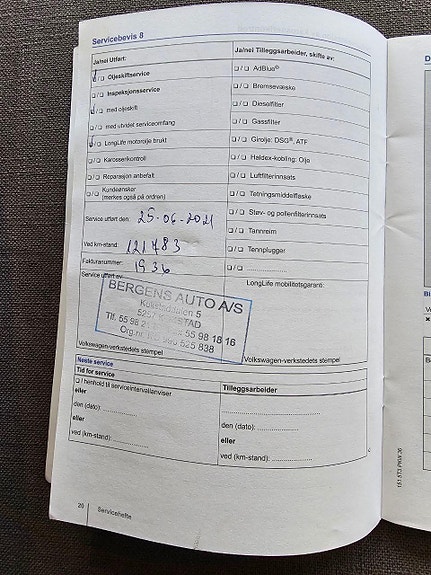 Servicebevis 8
Ja/nei Utført:
Ja/nei Tilleggsarbeider, skifte av:
Oljeskiftservice
Inspeksjonsservice
med oljeskift
med utvidet serviceomfang
LongLife motorolje brukt
Karosserikontroll
Reparasjon anbefalt
Kundeønsker
(merkes også på ordren)
AdBlue®
Bremsevæske
Dieselfilter
Gassfilter
Girolje: DSG®, ATF
Haldex-kobling: Olje
Luftfilterinnsats
Tetningsmiddelflaske
Støv- og pollenfilterinnsats
Tannreim
Tennplugger
....................
Service utført den: 25-06-2021
Ved km-stand: 121483
Fakturanummer: 1936
Service utført av:
LongLife mobilitetsgaranti:
BERGENS AUTO A/S
5
Tlf. 55 98 55 98 18 16
Org.nr. 525 838
Volkswagen-verkstedets stempel
Volkswagen-verkstedets stempel
Neste service
Tid for service
Tilleggsarbeider
I henhold til serviceintervallanviser
eller
den (dato): ....................
eller
ved (km-stand): ....................
den (dato): ....................
eller
ved (km-stand): ....................
20
Servicehefte